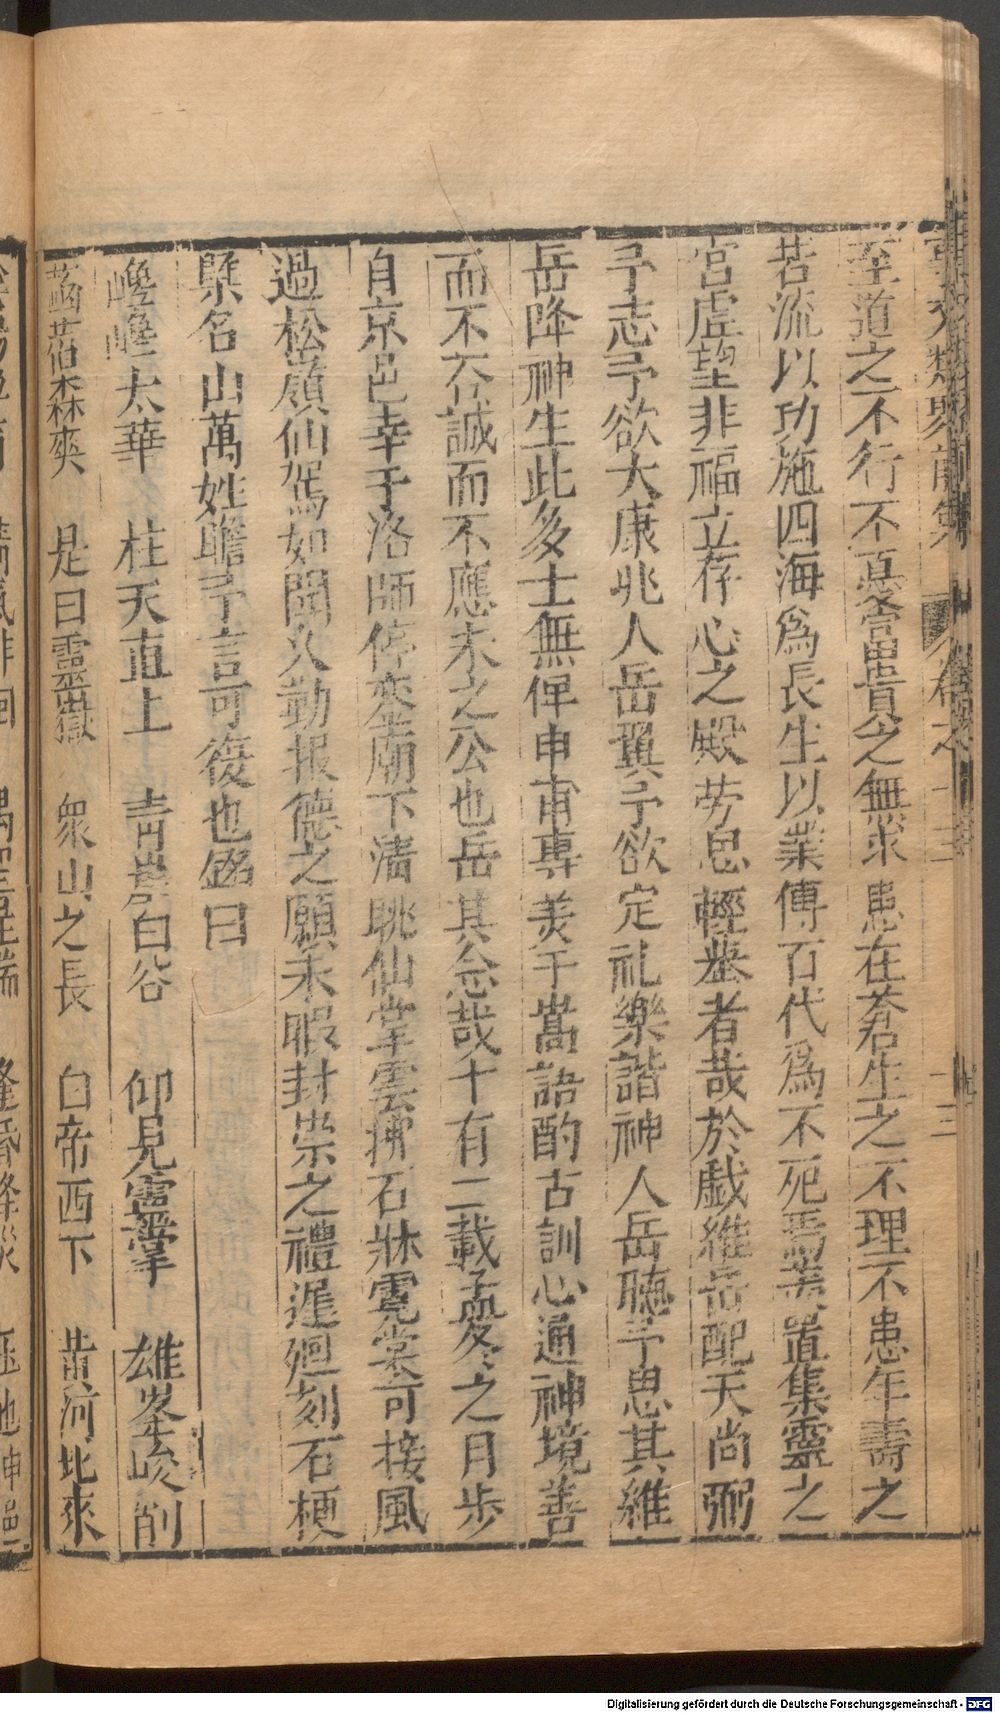 至道之不行不患富貴之無求患在蒼生之不理不患年壽之
若流以功施四海爲長生以業傳百代爲不死焉業置集靈之
宮虛望非福立存心之殿勞思輕舉者哉於戯維岳配天尚弼
予志予欲大康兆人岳翼予欲定礼樂諧神人岳聴予思其維
岳降神生此多士無俾申甫專美于嵩語酌古訓心通神境善
而不荅誠而不應未之公也岳其念哉十有二載孟冬之月步
自京邑幸于洛師停鑾廟下清眺仙掌雲拂石牀霓裳可接風
過松嶺仙駕如聞久勤报德之願未暇封崇之禮遲廻刻石梗
槩名山萬姓瞻予言可復也銘曰
巉巉太華　柱天直上　青崖白谷　仰見靈掌　雄峯峻削
菡萏森爽　是曰靈嶽　衆山之長　白帝西下　黄河北來
Digitalisierung gefördert durch die Deutsche Forschungsgemeinschaft - DFG